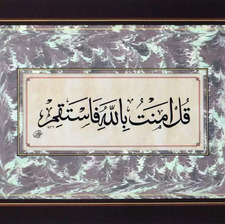 قُلْ اٰمَنْتُ بِاللّٰهِ فَاسْتَقِمْ